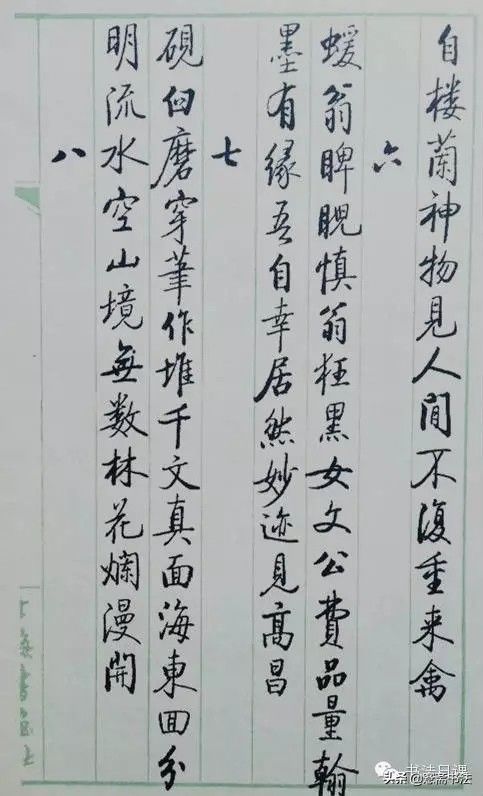 自楼蘭神物見人間不復重来禽
六
蝯翁睥睨慎翁狂黑女文公費品量翰
墨有缘吾自幸居然妙迹見高昌
七
硯臼磨穿筆作堆千文真面海東回分
明流水空山境無数林花爛漫開
八
书法日课
头条@忿斋书法